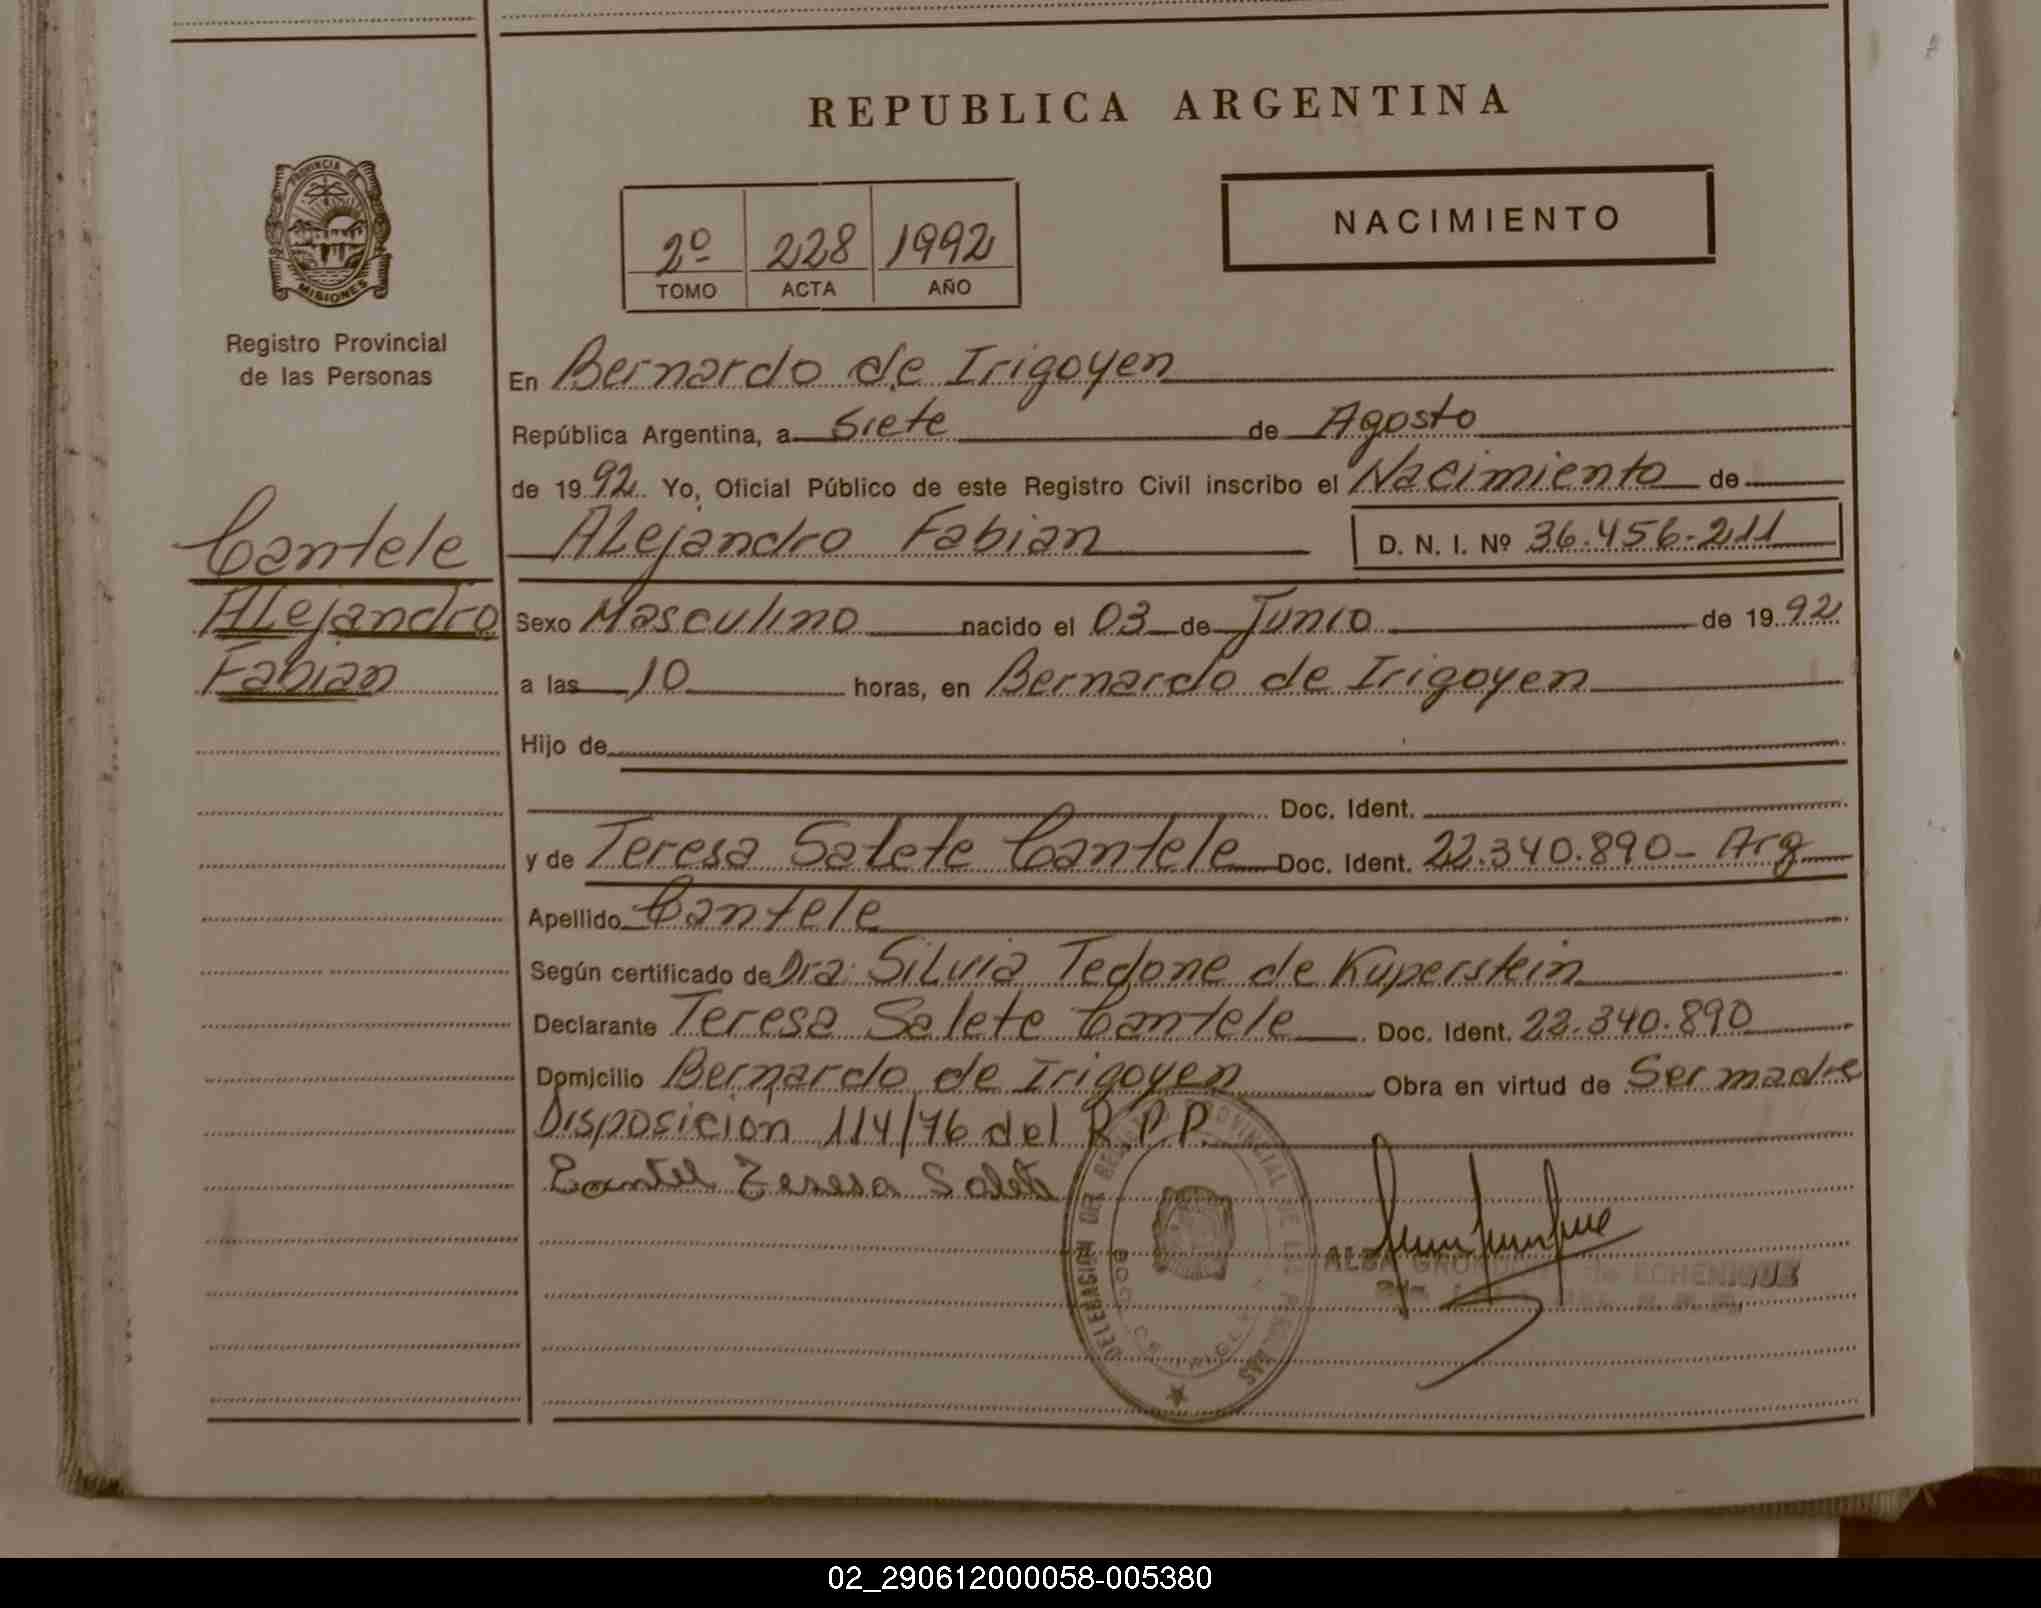 REPUBLICA ARGENTINA
PROVINCIA DE
MISIONES
Registro Provincial
de las Personas
2º 228 1992
TOMO ACTA AÑO
NACIMIENTO
En Bernardo de Irigoyen
República Argentina, a Siete de Agosto
de 1992 Yo, Oficial Público de este Registro Civil inscribo el Nacimiento de
Alejandro Fabian D. N. I. Nº 36.456.211
Cantele
Alejandro
Fabian
Sexo Masculino nacido el 03 de Junio de 1992
a las 10 horas, en Bernardo de Irigoyen
Hijo de
Doc. Ident.
y de Teresa Salete Cantele Doc. Ident. 22.340.890- Arg
Apellido Cantele
Según certificado de Dra. Silvia Tedone de Kuperstein
Declarante Teresa Salete Cantele Doc. Ident. 22.340.890
Domicilio Bernardo de Irigoyen Obra en virtud de Ser madre
Disposición 114/76 del R.P.P.
Cantel Teresa Salete
DELEGACION DEL REGISTRO PROVINCIAL DE LAS PERSONAS
ALBA de ECHENIQUE
02_290612000058-005380